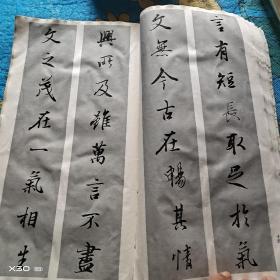 言有短長取足於氣
文無今古在暢其情
興所及雖萬言不盡
文之茂在一氣相生
X30